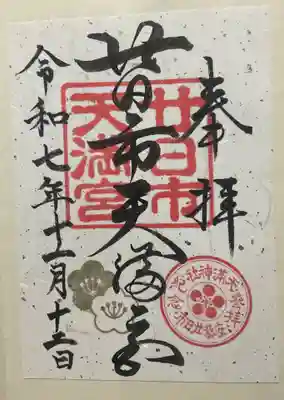 奉拝
廿日市天満宮
廿日市
天満宮
令和七年十二月十三日